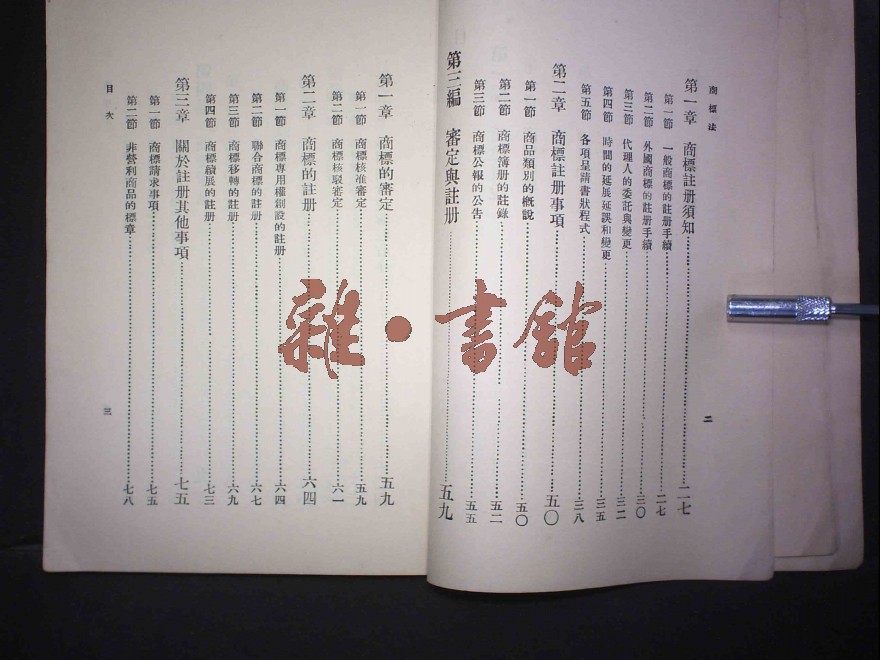 商標法
第一章 商標註册須知 二七
第一節 一般商標的註册手續 二七
第二節 外國商標的註册手續 三〇
第三節 代理人的委託與變更 三二
第四節 時間的延展延誤和變更 三五
第五節 各項呈請書狀程式 三八
第二章 商標註册事項 五〇
第一節 商品類別的概說 五〇
第二節 商標簿册的註錄 五二
第三節 商標公報的公告 五五
第三編 審定與註册 五九
二
第一章 商標的審定 五九
第一節 商標核准審定 五九
第二節 商標核駁審定 六一
第二章 商標的註册 六四
第一節 商標專用權創設的註册 六四
第二節 聯合商標的註册 六七
第三節 商標移轉的註册 六九
第四節 商標續展的註册 七三
第三章 關於註册其他事項 七五
第一節 商標請求事項 七五
第二節 非營利商品的標章 七八
目次
三
雜·書館